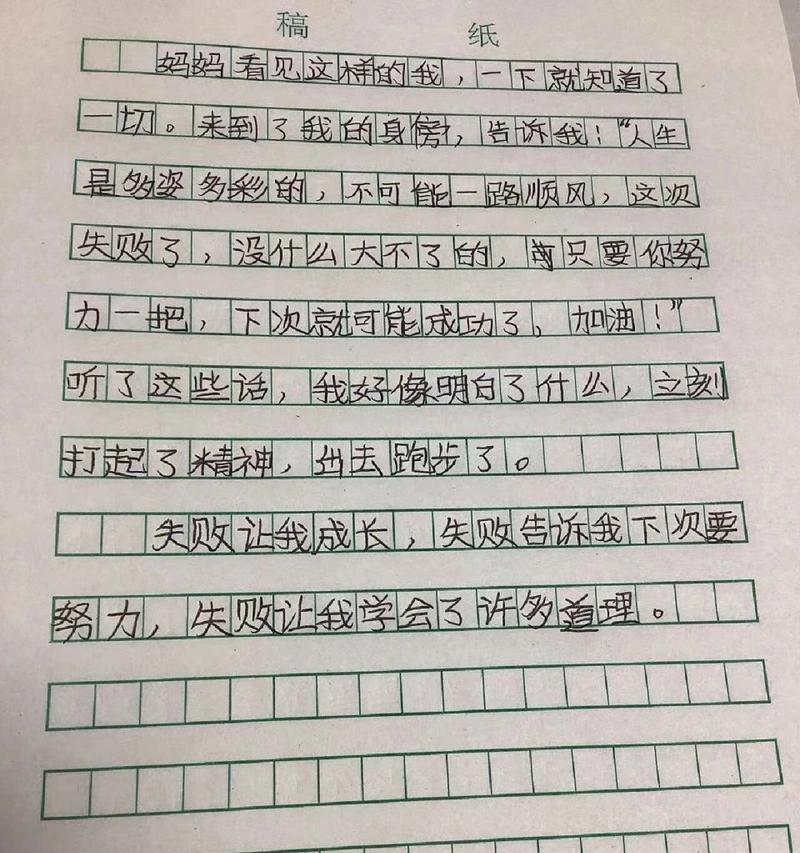 稿 纸
妈妈看见这样的我，一下就知道了
一切。来到了我的身傍，告诉我！“人生
是多姿多彩的，不可能一路顺风，这次
失败了，没什么大不了的，只要你努
力一把，下次就可能成功了，加油！”
听了这些话，我好像明白了什么，立刻
打起了精神，出去跑步了。
失败让我成长，失败告诉我下次要
努力，失败让我学会了许多道理。